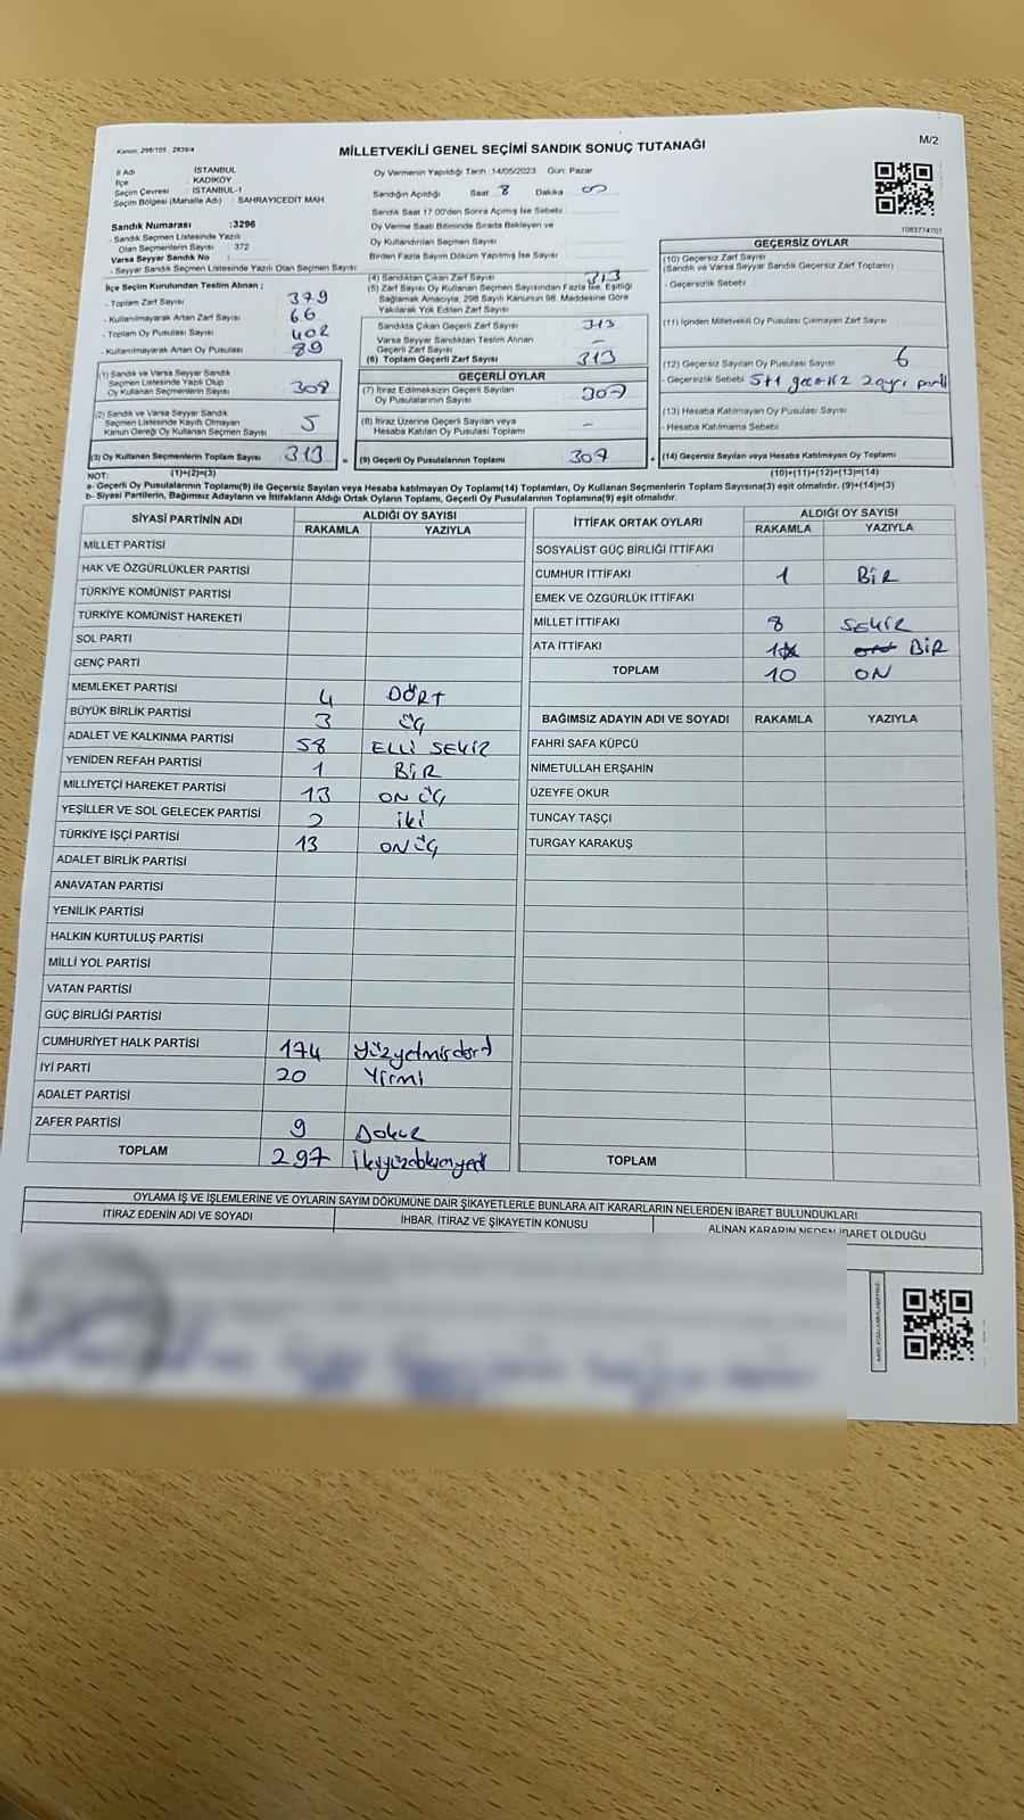 Kanun: 298/105 , 2839/4
MİLLETVEKİLİ GENEL SEÇİMİ SANDIK SONUÇ TUTANAĞI
M/2
İl Adı : İSTANBUL
İlçe : KADIKÖY
Seçim Çevresi : İSTANBUL-1
Seçim Bölgesi (Mahalle Adı) : SAHRAYICEDİT MAH.
Oy Vermenin Yapıldığı Tarih :14/05/2023 Gün: Pazar
Sandığın Açıldığı Saat 8 Dakika
Sandık Saat 17.00'den Sonra Açılmış İse Sebebi
Oy Verme Saati Bitiminde Sırada Bekleyen ve
Oy Kullandırılan Seçmen Sayısı
Birden Fazla Sayım Döküm Yapılmış İse Sayısı
1083774701
Sandık Numarası :3296
- Sandık Seçmen Listesinde Yazılı
Olan Seçmenlerin Sayısı : 372
Varsa Seyyar Sandık No :
- Seyyar Sandık Seçmen Listesinde Yazılı Olan Seçmen Sayısı
İlçe Seçim Kurulundan Teslim Alınan ;
- Toplam Zarf Sayısı 379
- Kullanılmayarak Artan Zarf Sayısı 66
- Toplam Oy Pusulası Sayısı 402
- Kullanılmayarak Artan Oy Pusulası 89
(1) Sandık ve Varsa Seyyar Sandık
Seçmen Listesinde Yazılı Olup
Oy Kullanan Seçmenlerin Sayısı 308
(2) Sandık ve Varsa Seyyar Sandık
Seçmen Listesinde Kayıtlı Olmayan
Kanun Gereği Oy Kullanan Seçmen Sayısı 5
(3) Oy Kullanan Seçmenlerin Toplam Sayısı 313
(1)+(2)=(3)
(4) Sandıktan Çıkan Zarf Sayısı 313
(5) Zarf Sayısı Oy Kullanan Seçmen Sayısından Fazla İse, Eşitliği
Sağlamak Amacıyla, 298 Sayılı Kanunun 98. Maddesine Göre
Yakılarak Yok Edilen Zarf Sayısı
Sandıkta Çıkan Geçerli Zarf Sayısı 313
Varsa Seyyar Sandıktan Teslim Alınan
Geçerli Zarf Sayısı -
(6) Toplam Geçerli Zarf Sayısı 313
GEÇERLİ OYLAR
(7) İtiraz Edilmeksizin Geçerli Sayılan
Oy Pusulalarının Sayısı 307
(8) İtiraz Üzerine Geçerli Sayılan veya
Hesaba Katılan Oy Pusulası Toplamı -
= (9) Geçerli Oy Pusulalarının Toplamı 307
GEÇERSİZ OYLAR
(10) Geçersiz Zarf Sayısı
(Sandık ve Varsa Seyyar Sandık Geçersiz Zarf Toplamı)
- Geçersizlik Sebebi
(11) İçinden Milletvekili Oy Pusulası Çıkmayan Zarf Sayısı
(12) Geçersiz Sayılan Oy Pusulası Sayısı 6
- Geçersizlik Sebebi 5+1 2 ayrı parti
(13) Hesaba Katılmayan Oy Pusulası Sayısı
- Hesaba Katılmama Sebebi
+ (14) Geçersiz Sayılan veya Hesaba Katılmayan Oy Toplamı
(10)+(11)+(12)+(13)=(14)
NOT:
a- Geçerli Oy Pusulalarının Toplamı(9) ile Geçersiz Sayılan veya Hesaba katılmayan Oy Toplamı(14) Toplamları, Oy Kullanan Seçmenlerin Toplam Sayısına(3) eşit olmalıdır. (9)+(14)=(3)
b- Siyasi Partilerin, Bağımsız Adayların ve İttifakların Aldığı Ortak Oyların Toplamı, Geçerli Oy Pusulalarının Toplamına(9) eşit olmalıdır.
SİYASİ PARTİNİN ADI ALDIĞI OY SAYISI
RAKAMLA YAZIYLA
MİLLET PARTİSİ
HAK VE ÖZGÜRLÜKLER PARTİSİ
TÜRKİYE KOMÜNİST PARTİSİ
TÜRKİYE KOMÜNİST HAREKETİ
SOL PARTİ
GENÇ PARTİ
MEMLEKET PARTİSİ 4 DÖRT
BÜYÜK BİRLİK PARTİSİ 3 ÜÇ
ADALET VE KALKINMA PARTİSİ 58 ELLİ SEKİZ
YENİDEN REFAH PARTİSİ 1 BİR
MİLLİYETÇİ HAREKET PARTİSİ 13 ON ÜÇ
YEŞİLLER VE SOL GELECEK PARTİSİ 2 iki
TÜRKİYE İŞÇİ PARTİSİ 13 ON ÜÇ
ADALET BİRLİK PARTİSİ
ANAVATAN PARTİSİ
YENİLİK PARTİSİ
HALKIN KURTULUŞ PARTİSİ
MİLLİ YOL PARTİSİ
VATAN PARTİSİ
GÜÇ BİRLİĞİ PARTİSİ
CUMHURİYET HALK PARTİSİ 174 Yüzyetmişdört
İYİ PARTİ 20 Yirmi
ADALET PARTİSİ
ZAFER PARTİSİ 9 Dokuz
TOPLAM 297 İkiyüzdoksanyedi
İTTİFAK ORTAK OYLARI ALDIĞI OY SAYISI
RAKAMLA YAZIYLA
SOSYALİST GÜÇ BİRLİĞİ İTTİFAKI
CUMHUR İTTİFAKI 1 BİR
EMEK VE ÖZGÜRLÜK İTTİFAKI
MİLLET İTTİFAKI 8 SEKİZ
ATA İTTİFAKI 1 BİR
TOPLAM 10 ON
BAĞIMSIZ ADAYIN ADI VE SOYADI RAKAMLA YAZIYLA
FAHRİ SAFA KÜPCÜ
NİMETULLAH ERŞAHİN
ÜZEYFE OKUR
TUNCAY TAŞÇI
TURGAY KARAKUŞ
TOPLAM
OYLAMA İŞ VE İŞLEMLERİNE VE OYLARIN SAYIM DÖKÜMÜNE DAİR ŞİKAYETLERLE BUNLARA AİT KARARLARIN NELERDEN İBARET BULUNDUKLARI
İTİRAZ EDENİN ADI VE SOYADI
İHBAR, İTİRAZ VE ŞİKAYETİN KONUSU
ALINAN KARARIN NEDEN İBARET OLDUĞU